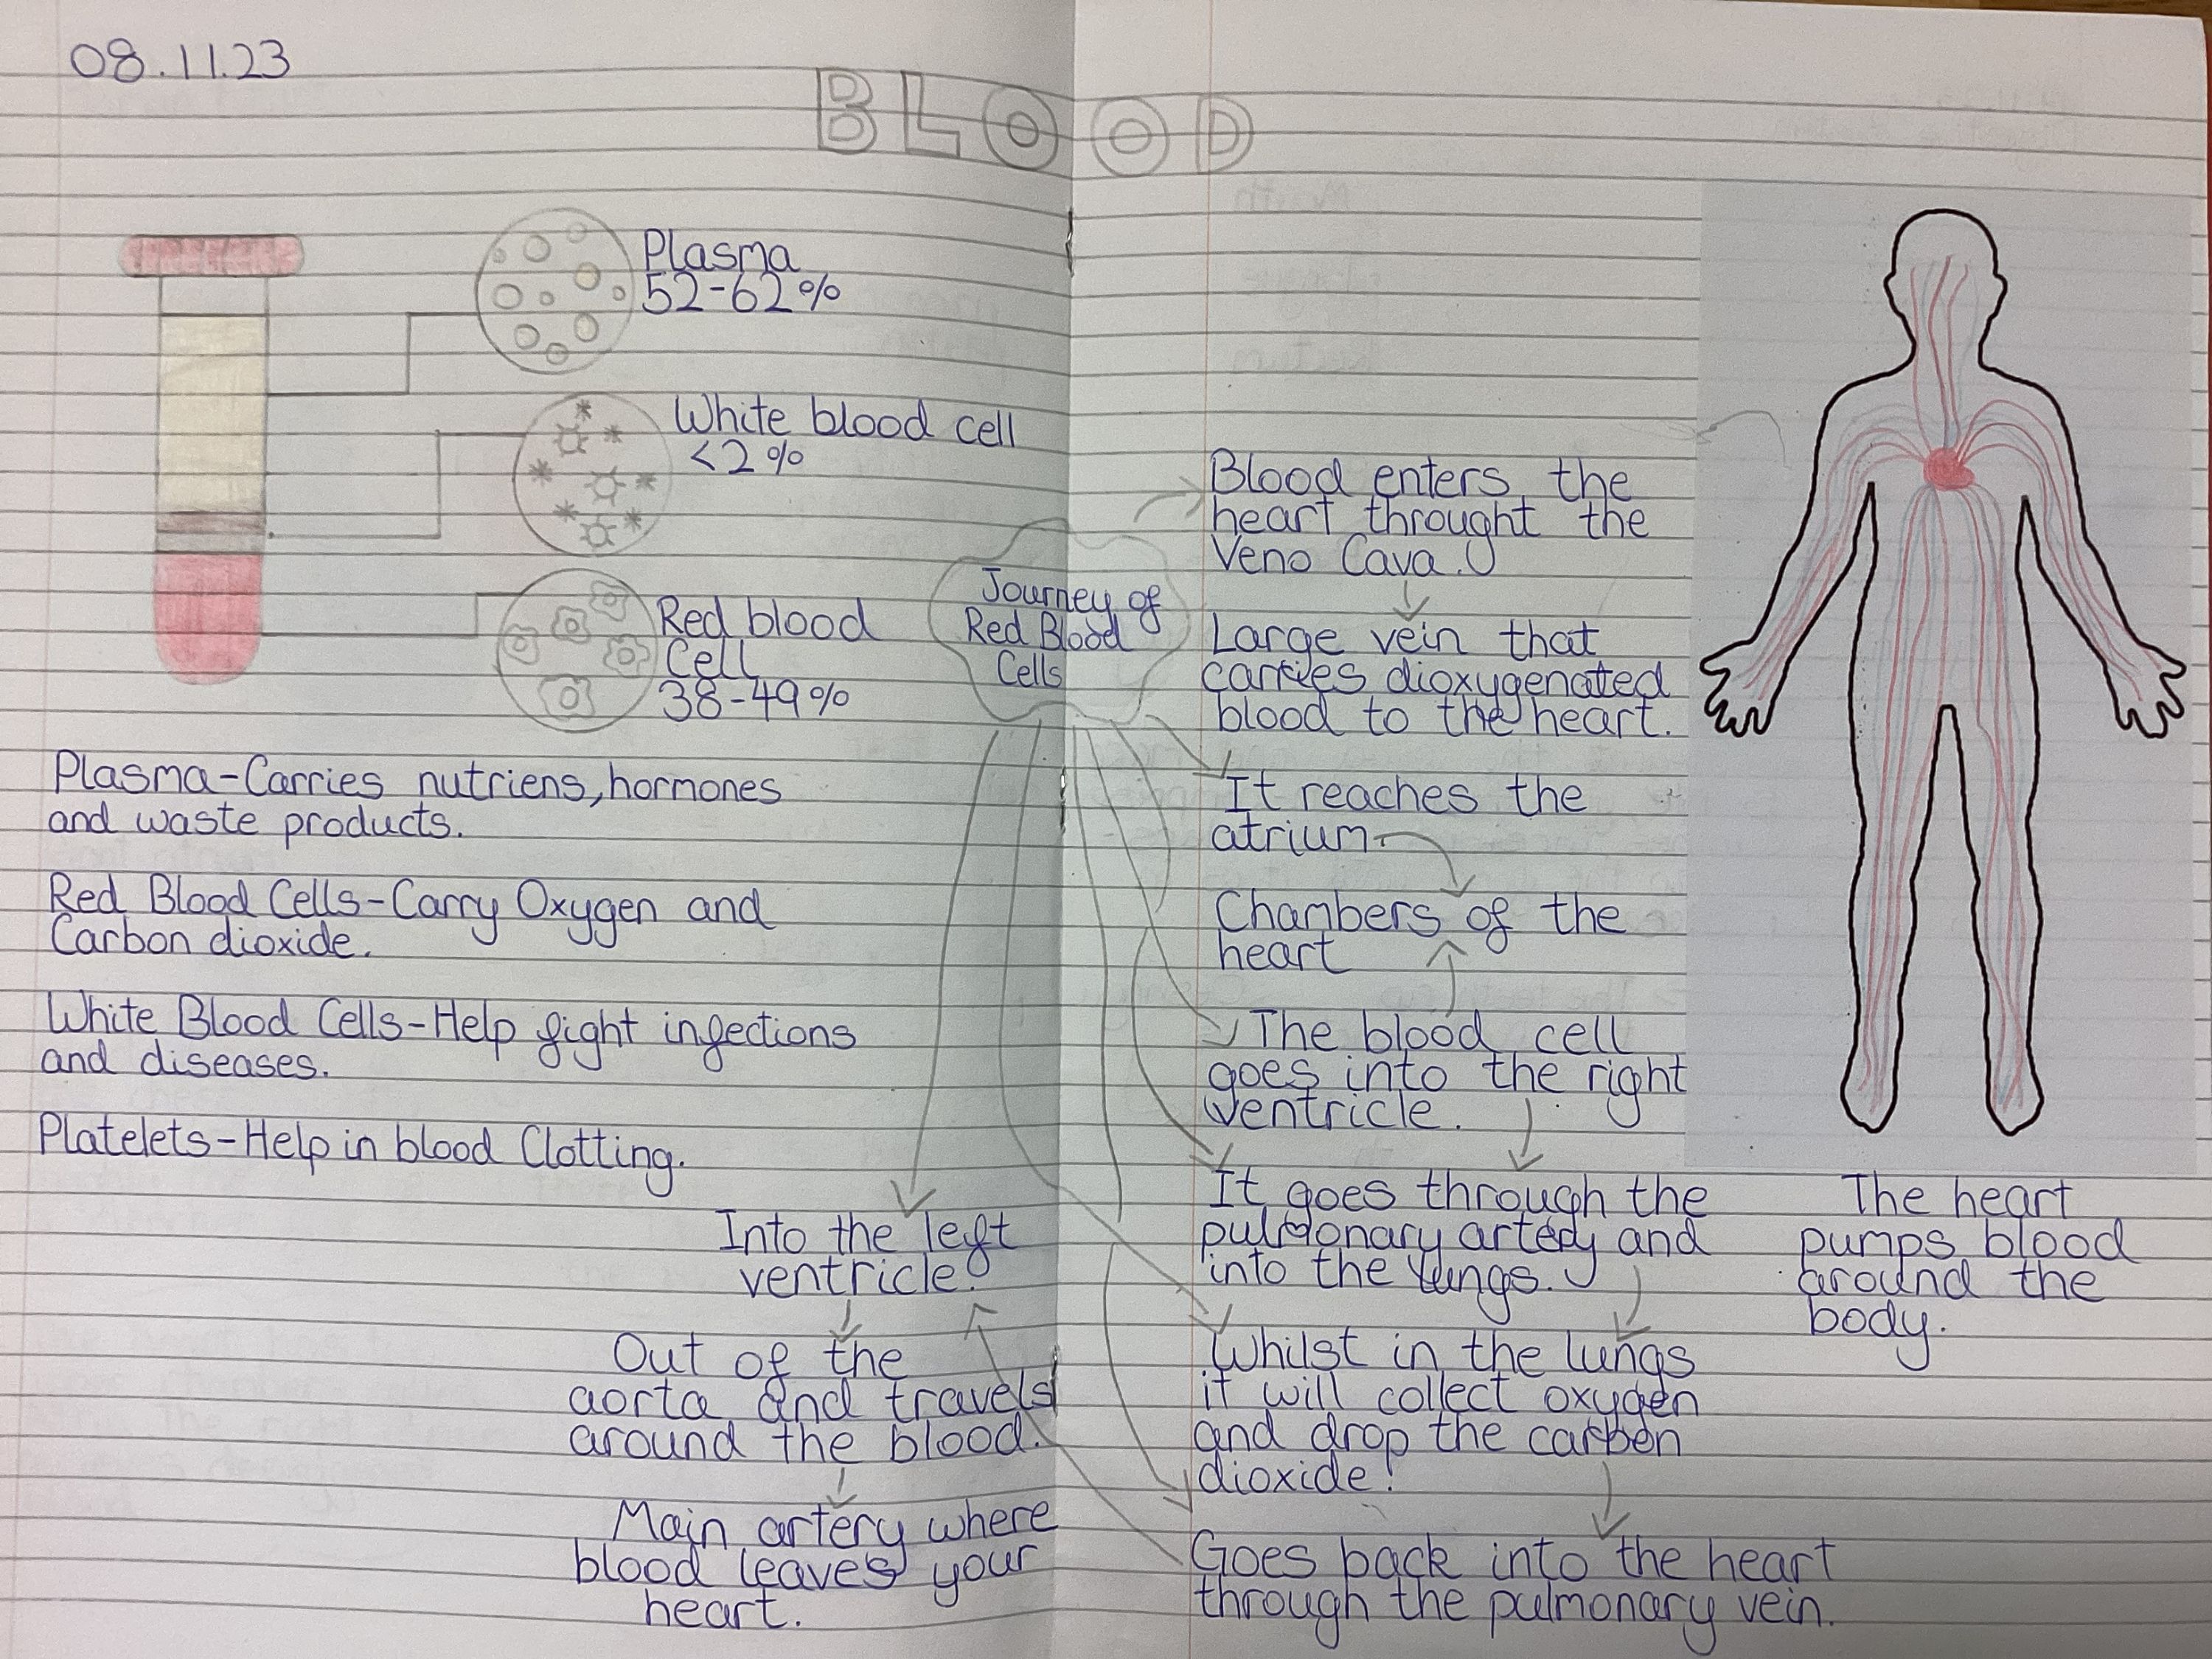 08.11.23
BLOOD
Plasma
52-62%
White blood cell
<2%
Red blood
Cell
38-49%
Plasma-Carries nutriens, hormones
and waste products.
Red Blood Cells-Carry Oxygen and
Carbon dioxide.
White Blood Cells-Help fight infections
and diseases.
Platelets-Help in blood Clotting.
Journey of
Red Blood
Cells
Blood enters the
heart throught the
Veno Cava.
Large vein that
carries dioxygenated
blood to the heart.
It reaches the
atrium
Chambers of the
heart
The blood cell
goes into the right
ventricle.
It goes through the
pulmonary artery and
into the lungs.
Whilst in the lungs
it will collect oxygen
and drop the carbon
dioxide!
Goes back into the heart
through the pulmonary vein.
Into the left
ventricle.
Out of the
aorta and travels
around the blood.
Main artery where
blood leaves your
heart.
The heart
pumps blood
around the
body.